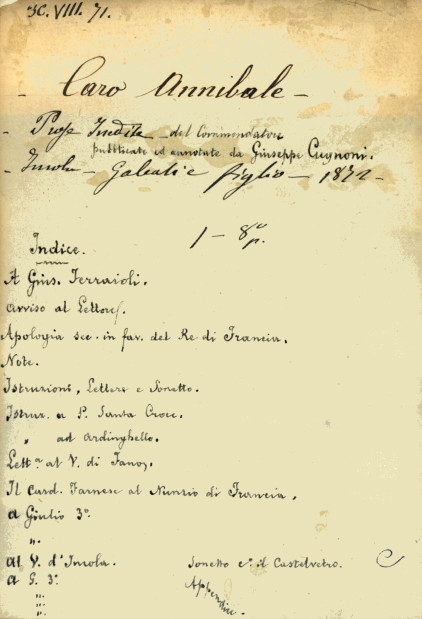 3C.VIII. 71.
- Caro Annibale -
- Prose Inedite - del Commendatore
pubblicate ed annotate da Giuseppe Cugnoni.
- Imola - Galeati e figlio - 1872 -
1 - 8º p.
Indice.
A Gius. Ferraioli.
Avviso al Lettore.
Apologia sec. in fav. del Re di Francia.
Note.
Istruzioni, Lettere e Sonetto.
Istruz. a P. Santa Croce.
" ad Ardinghello.
Lettª al V. di Fano.
Il Card. Farnese al Nunzio di Francia.
a Giulio 3º.
".
al V. d'Imola. Sonetto cº il Castelvetro.
a G. 3º.
Appendice.
".
".